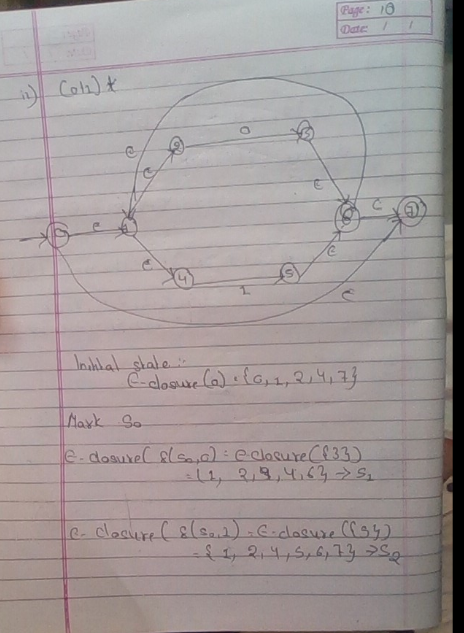 Page: 10
Date: / /
ii) (0|1)*
ε
0
ε
ε
ε
ε
ε
ε
1
ε
ε
2 3
0 1 6 7
4 5
Initial state :-
ε-closure(0) = {0, 1, 2, 4, 7}
Mark S0
ε-closure( δ(S0,0) = ε closure({3})
= {1, 2, 3, 4, 6} → S1
ε- closure( δ(S0,1) = ε-closure({5})
= {1, 2, 4, 5, 6, 7} → S2